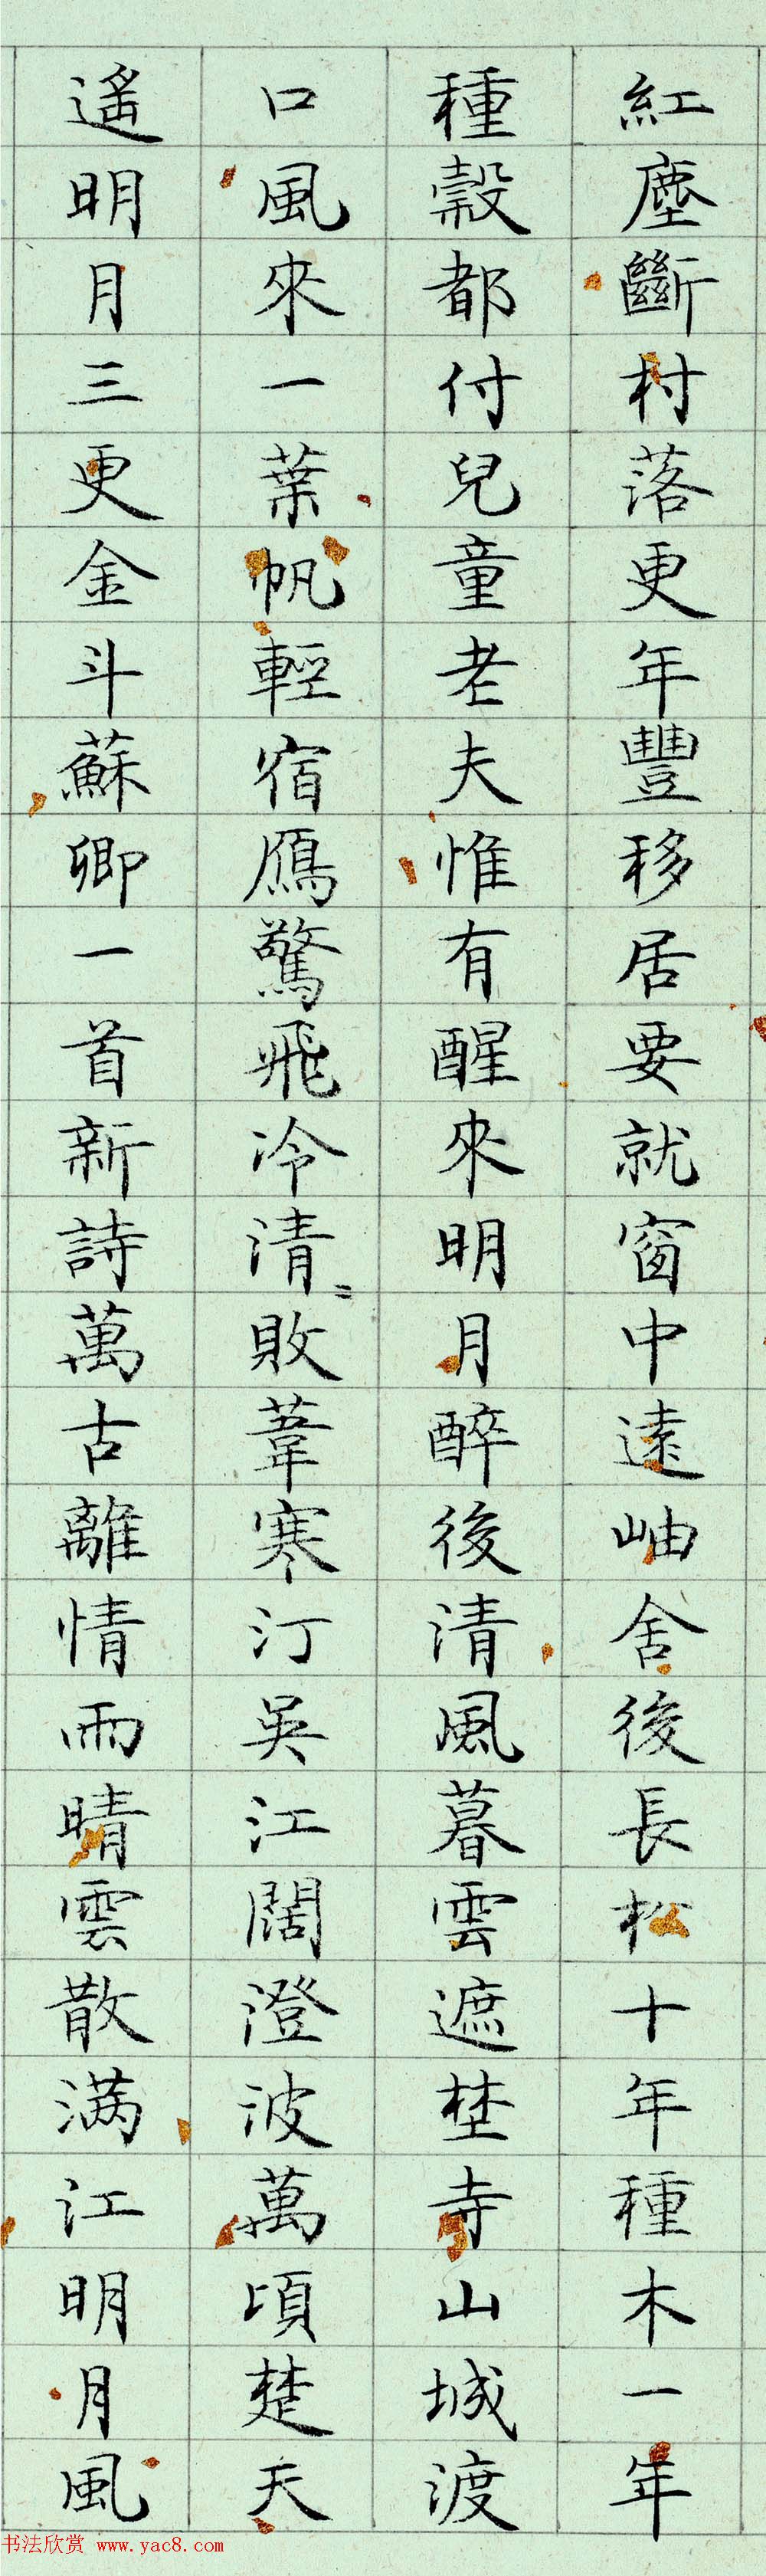 紅塵斷村落更年豐移居要就窗中遠岫舍後長松十年種木一年
種穀都付兒童老夫惟有醒來明月醉後清風暮雲遮埜寺山城渡
口風來一葉帆輕宿鴈驚飛冷清〻敗葦寒汀吳江闊澄波萬頃楚天
遙明月三更金斗蘇卿一首新詩萬古離情雨晴雲散滿江明月風
书法欣赏 www.yac8.com